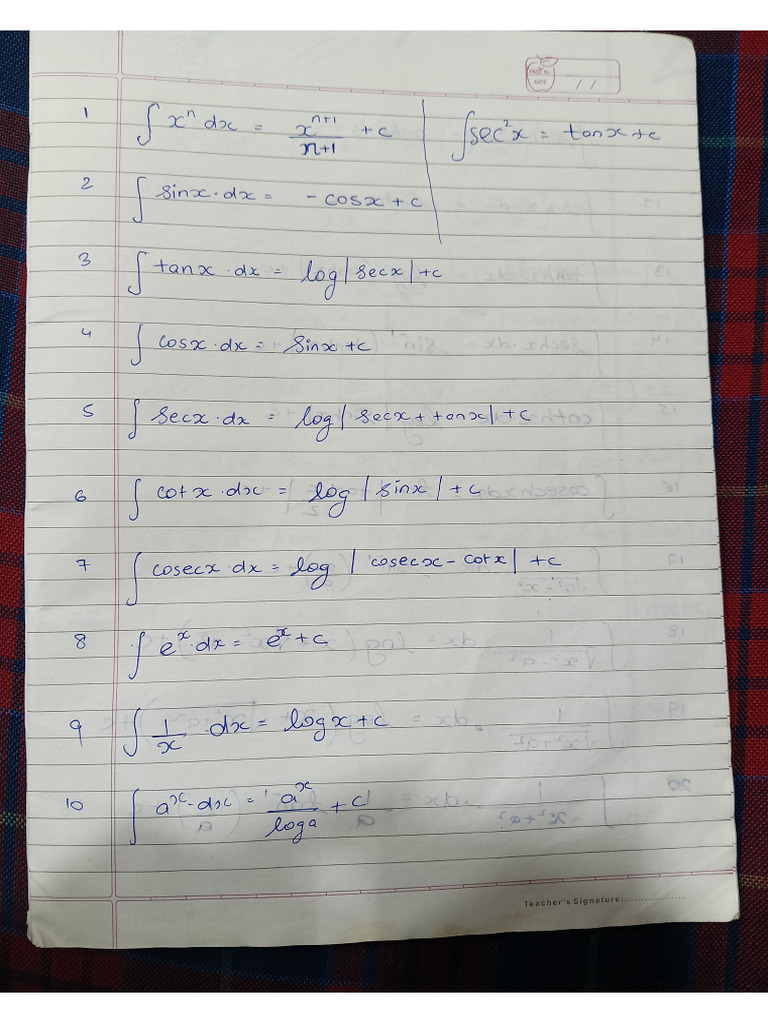 PAGE NO.
DATE / /
1 ∫ xⁿ dx = xⁿ⁺¹/n+1 + c | ∫sec²x = tanx + c
2 ∫ sinx·dx = - cosx + c
3 ∫ tanx·dx = log|secx| + c
4 ∫ cosx·dx = sinx + c
5 ∫ secx·dx = log|secx + tanx| + c
6 ∫ cotx·dx = log|sinx| + c
7 ∫ cosecx·dx = log|cosecx - cotx| + c
8 ∫ eˣ·dx = eˣ + c
9 ∫ 1/x ·dx = logx + c
10 ∫ aˣ·dx = aˣ/loga + c
Teacher's Signature:....................